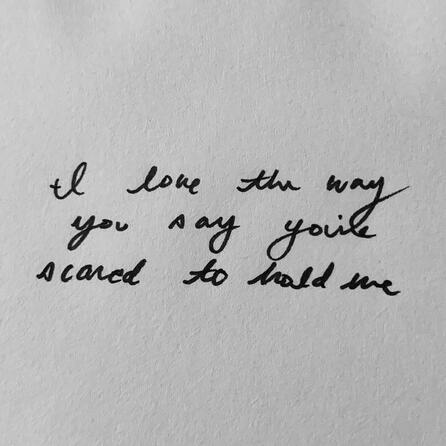 I love the way
you say you're
scared to hold me